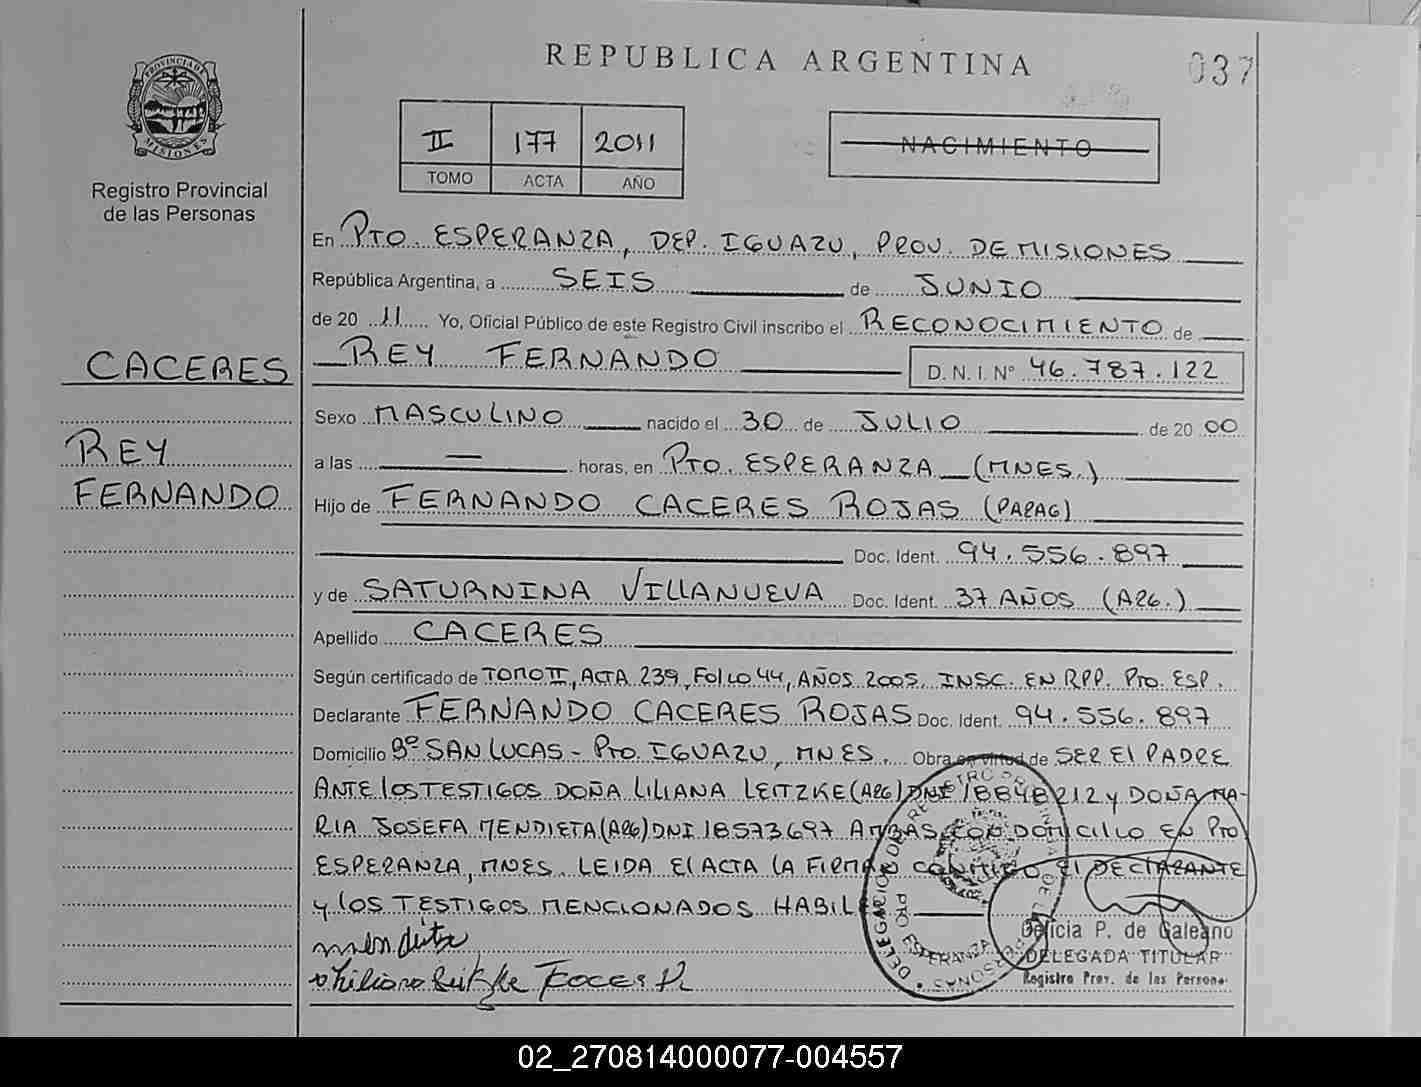 REPUBLICA ARGENTINA
037
PROVINCIA DE MISIONES
Registro Provincial
de las Personas
II 177 2011
TOMO ACTA AÑO
NACIMIENTO
En PTO. ESPERANZA, DEP. IGUAZU, PROV. DE MISIONES
República Argentina, a SEIS de JUNIO
de 20 11 Yo, Oficial Público de este Registro Civil inscribo el RECONOCIMIENTO de
REY FERNANDO D.N.I. Nº 46.787.122
CACERES
REY
FERNANDO
Sexo MASCULINO nacido el 30 de JULIO de 20 00
a las — horas, en PTO. ESPERANZA (MNES.)
Hijo de FERNANDO CACERES ROJAS (PARAG)
Doc. Ident. 94.556.897
y de SATURNINA VILLANUEVA Doc. Ident. 37 AÑOS (ARG.)
Apellido CACERES
Según certificado de TOMO II, ACTA 239, FOLIO 44, AÑOS 2005. INSC. EN RPP. PTO. ESP.
Declarante FERNANDO CACERES ROJAS Doc. Ident. 94.556.897
Domicilio Bº SAN LUCAS - PTO. IGUAZU, MNES. Obra en virtud de SER EL PADRE
ANTE LOS TESTIGOS DOÑA LILIANA LEITZKE (ARG) DNI 18848212 y DOÑA MA-
RIA JOSEFA MENDIETA (ARG) DNI 18573697 AMBAS CON DOMICILIO EN PTO
ESPERANZA, MNES. LEIDA EL ACTA LA FIRMAN CONMIGO EL DECLARANTE
y LOS TESTIGOS MENCIONADOS HABIL
DELEGACION DEL REGISTRO PROVINCIAL DE LAS PERSONAS
PTO ESPERANZA
Delicia P. de Galeano
DELEGADA TITULAR
Registro Prov. de las Personas
02_270814000077-004557